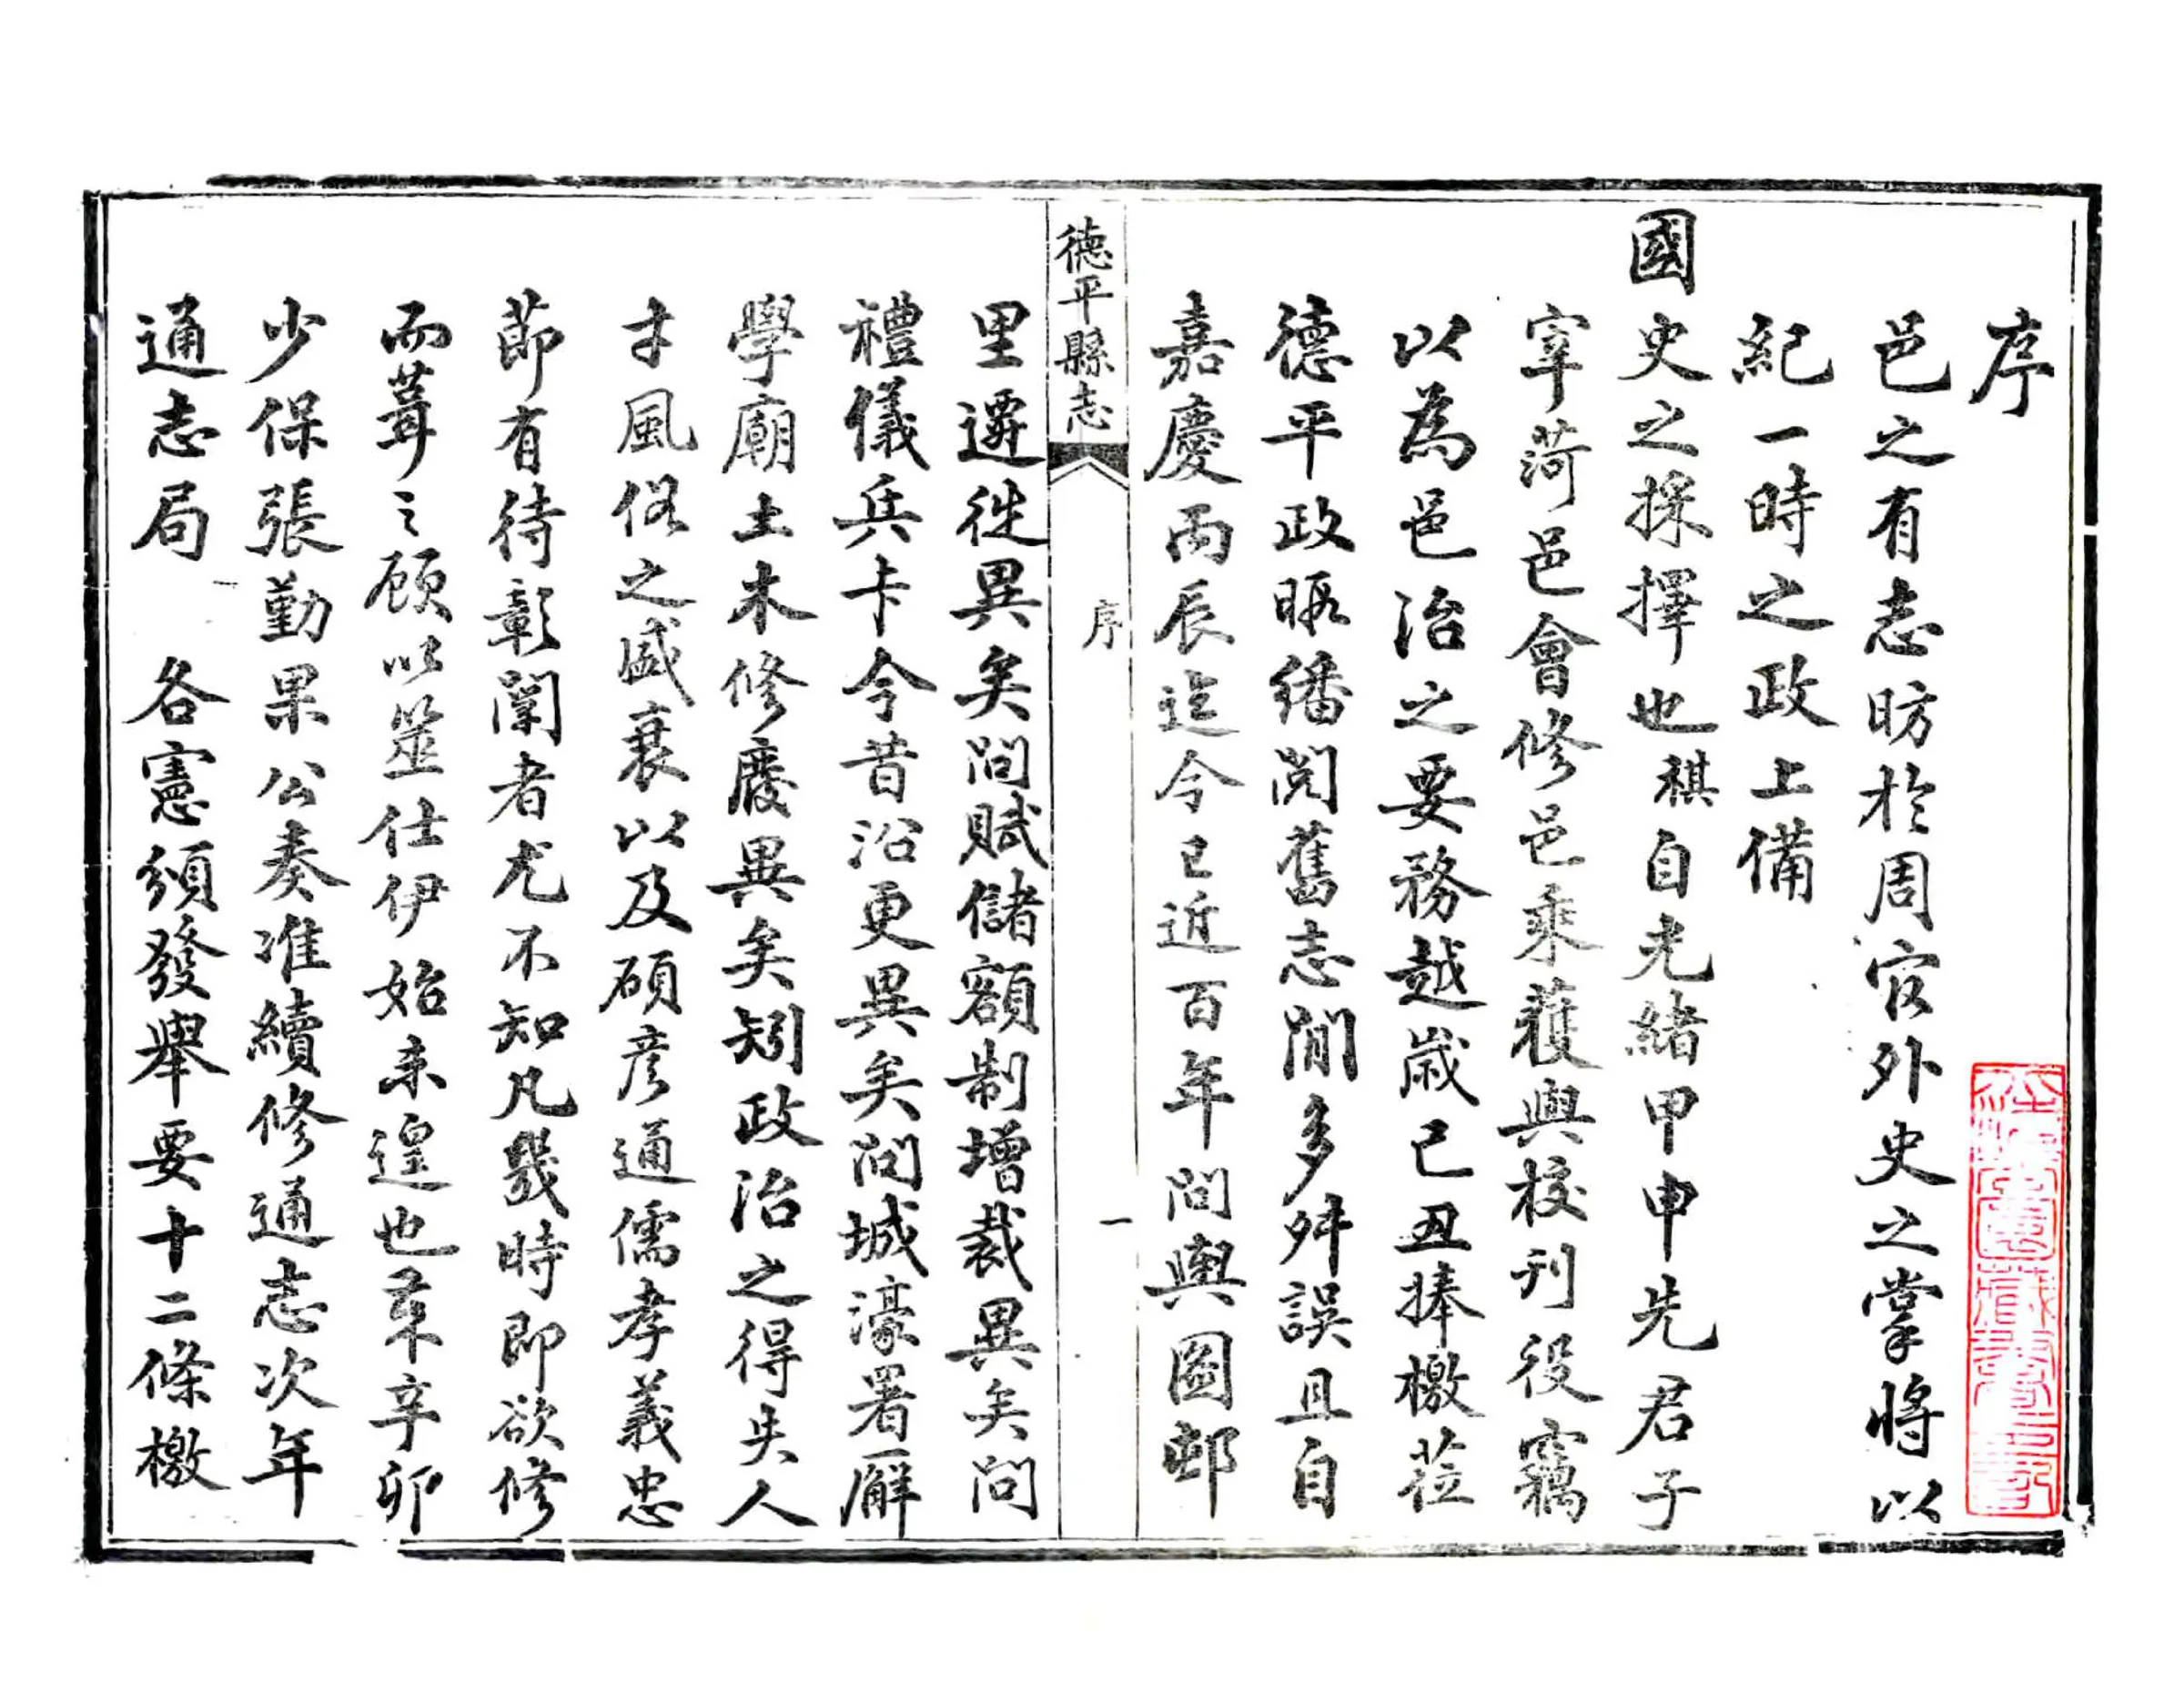 序
邑之有志昉於周官外史之掌將以
紀一時之政上備
國史之採擇也祺自光緒甲申先君子
宰菏邑會修邑乘蒦與校刊役竊
以為邑治之要務越歲己丑捧檄莅
德平政暇繙閱舊志閒多舛誤且自
嘉慶丙辰迄今已近百年問輿圖邨
德平縣志
序
一
里遷徙異矣問賦儲額制增裁異矣問
禮儀兵卡今昔沿更異矣問城濠署廨
學廟土木修廢異矣矧政治之得失人
才風俗之盛衰以及碩彥通儒孝義忠
節有待彰闡者尤不知凡幾時即欲修
而葺之顧以筮仕伊始未遑也苐辛卯
少保張勤果公奏准續修通志次年
通志局 各憲頒發舉要十二條檄